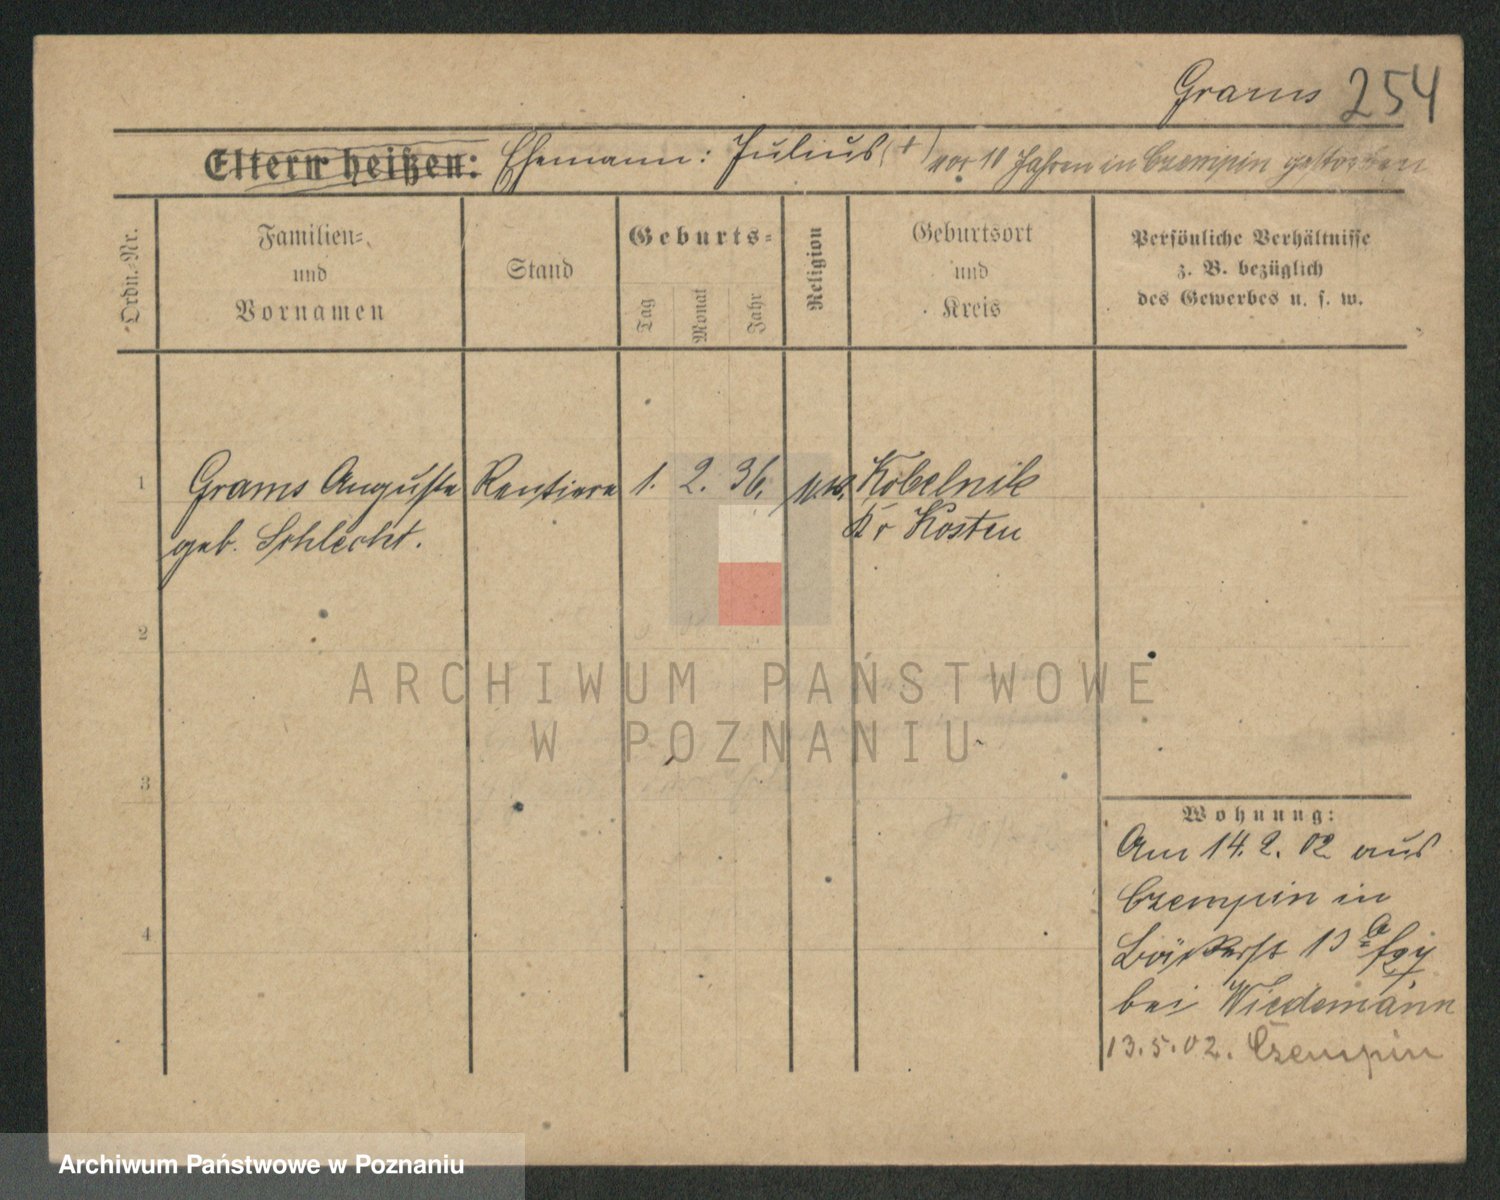 Grams 254
Eltern heißen: Ehemann: Julius (+) vor 10 Jahren in Czempin gestorben
Ordn.-Nr.
Familien-
und
Vornamen
Stand
Geburts-
Tag
Monat
Jahr
Religion
Geburtsort
und
Kreis
Persönliche Verhältnisse
z. B. bezüglich
des Gewerbes u. s. w.
1 Grams Auguste Rentiere 1. 2. 36. Kobelnik
geb. Schlecht. Kr Kosten
2
ARCHIWUM PAŃSTWOWE
W POZNANIU
3
Wohnung:
Am 14.2.02 aus
Czempin in
4
bei Wiedemann
13.5.02. Czempin
Archiwum Państwowe w Poznaniu